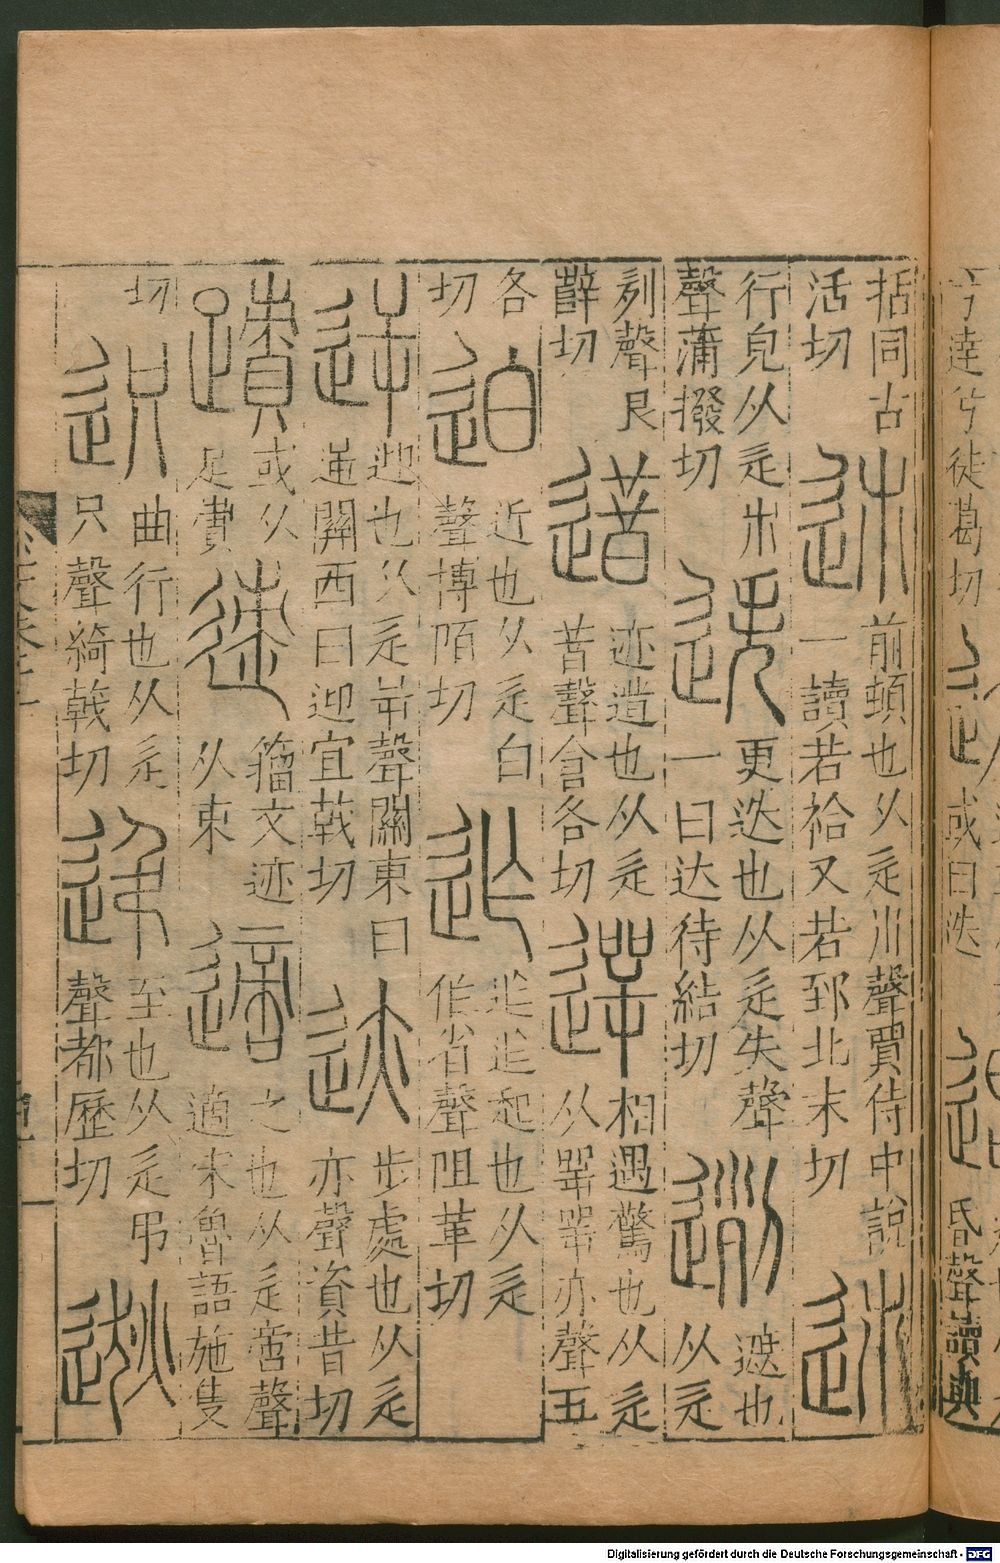 兮達兮徒葛切
或曰迭
昏聲讀與
括同古
活切
前頓也从辵𣎵聲賈侍中說
一讀若祫又若郅北末切
行皃从辵𣎵
聲蒲撥切
更迭也从辵失聲
一曰达待結切
遮也
从辵
列聲良
辥切
迹遣也从辵
昔聲倉各切
相遇驚也从辵
从㖾㖾亦聲五
各
切
近也从辵白
聲博陌切
迮迮起也从辵
作省聲阻革切
迎也从辵屰聲關東曰
逆關西曰迎宜戟切
步處也从辵
亦聲資昔切
或从
足責
籀文迹
从朿
之也从辵啻聲
適宋魯語施隻
切
曲行也从辵
只聲綺戟切
至也从辵弔
聲都歷切
Digitalisierung gefördert durch die Deutsche Forschungsgemeinschaft - DFG